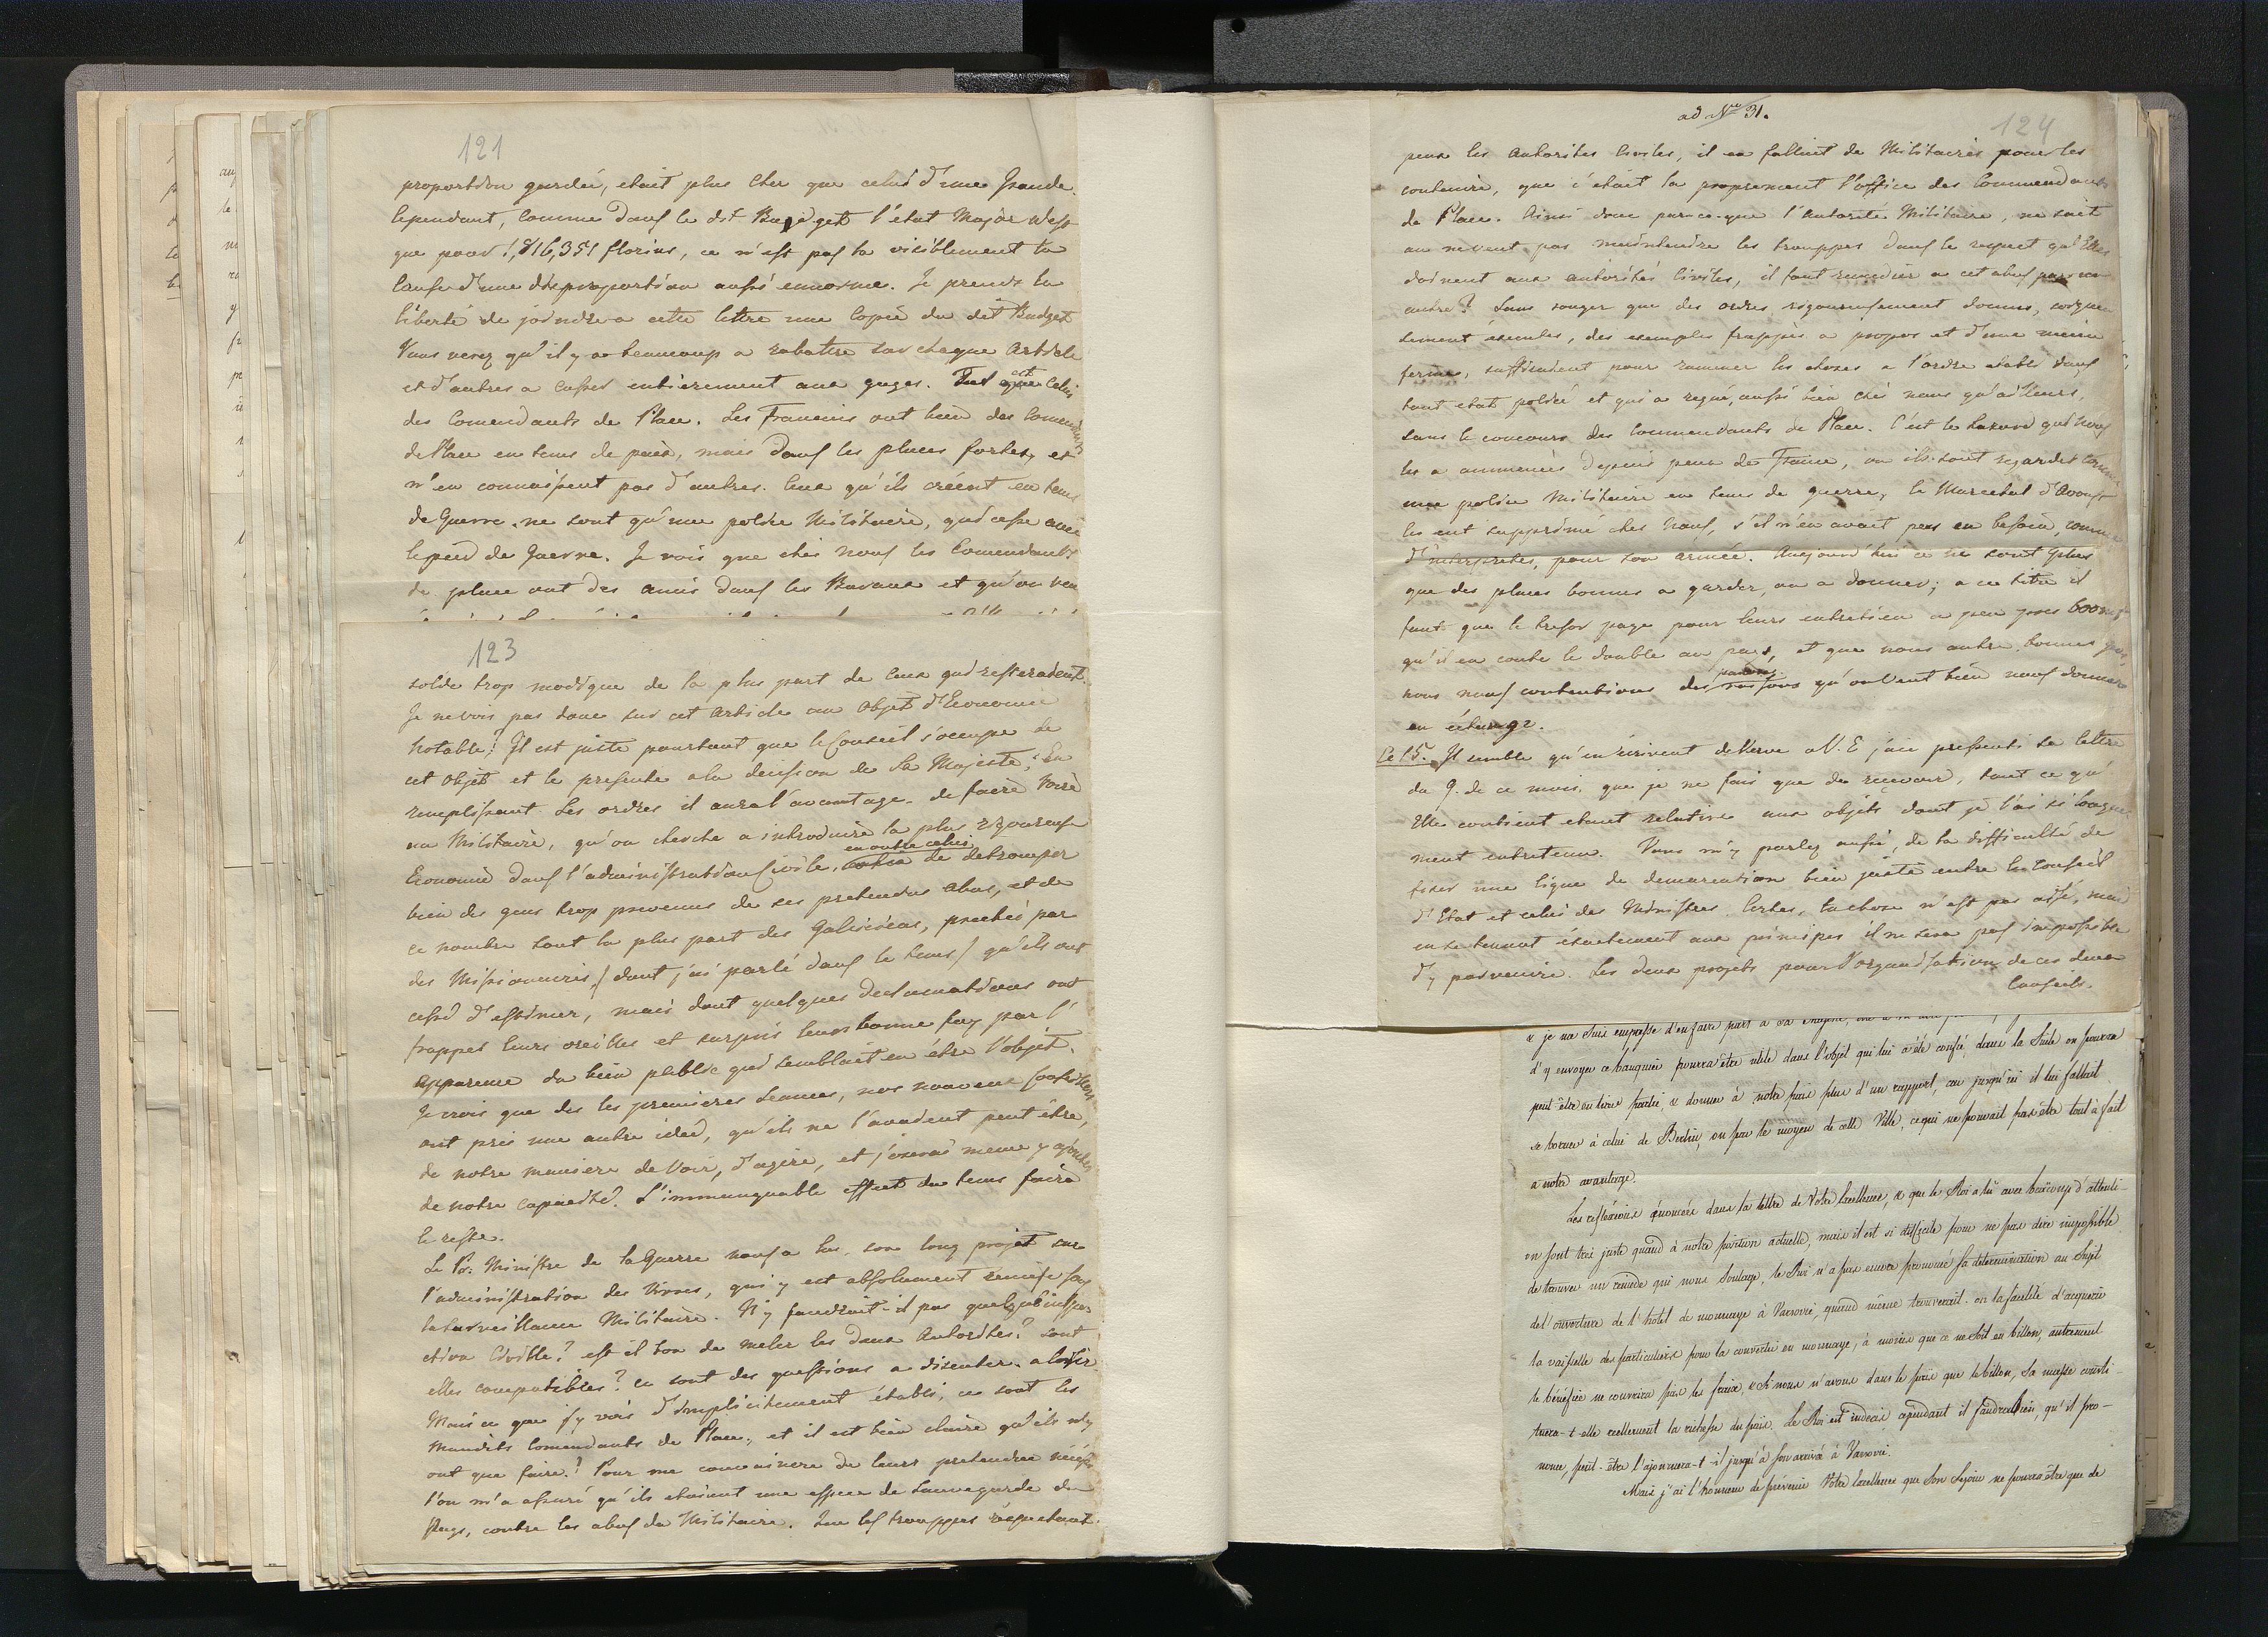 121
proportion gardée, etait plus cher que celui d'une grande.
Cependant, comme dans le dit Budget l'état Major n'est
que pour 1,816,351 florins, ce n'est pas la visiblement la
Cause d'une disproportion aussi ennorme. Je prends la
liberté de joindre a cette lettre une Copie du dit Budget
Vous verez qu'il y a beaucoup a rabattre sur chaque Article
et d'autres a casser entierement aux gages. Tel est celui
des Comendants de Place. Les Francais ont bien des Comendants
de Place en tems de paix, mais dans les places fortes, et
n'en connaissent pas d'autres. Ceux qu'ils créent en tems
de Guerre, ne sont qu'une police Militaire, qui cesse avec
le pied de Guerre. Je vois que chés nous les Comendants
de place ont des amis dans les Bureaux et qu'on veu
123
solde trop modique de la plus part de ceux qui resteraient.
Je ne vois pas donc sur cet Article un Objet d'Economie
Notable? Il est juste pourtant que le Conseil s'occupe de
cet Objet et le presente a la decision de Sa Majesté; En
remplissant Ses ordres il aura l'avantage de faire voir
au Militaire, qu'on cherche a introduire la plus rigoureuse
Economie dans l'administration Civile, en outre celui de detromper
bien des gens trop prevenus de ses pretendus abus, et de
ce nombre sont la plus part des Galiciéens, prechés par
des Missionaires, (dont j'ai parlé dans le tems) qu'ils ont
cessé d'estimer, mais dont quelques declamations ont
frappés leurs oreilles et surpris leur bonne foy par l'
apparence du bien public qui semblait en être l'objet.
Je crois que des les premieres seances, nos nouveaux Conseillers
ont pris une autre idée, qu'ils ne l'avaient peut être,
de notre maniere de voir, d'agir, et j'oserai meme y ajouter
de notre capacité. L'immanquable effet du tems faira
le reste.
Le Pr. Ministre de la Guerre nous a lu, son long projet sur
l'administration des Vivres, qui y est absolument remise sous
la surveillance Militaire. N'y faudrait-il pas quelque
Civile? est il bon de meler les deux Autorités? sont
elles compatibles? ce sont des questions a discuter a loisir.
Mais ce que j'y vois d'implicitement établi, ce sont les
Maudits Comendants de Place, et il est bien claire qu'ils n'y
ont que faire! Pour me convaincre de leurs pretendue
l'on m'a assuré qu'ils etaient une espece de Sauvegarde du
Pays, contre les abus du Militaire. Que les trouppes respectant
ad Nro 31.
124
peux les Autorités Civiles, il en fallait de Militaires pour les
contenir, que c'était la proprement l'office des Commendants
de Place. Ainsi donc parce-que l'Autorité Militaire, ne sait
ou ne veut pas maintenir les trouppes dans le respect qu'Elles
doivent aux autorités Civiles, il faut remedier a cet abus par un
autre? Sans songer que des ordres rigoureusement donnés,
sement éxecutés, des exemples frappés a propos et d'une
ferme, suffiraient pour ramener les choses a l'ordre etabli dans
tout etat policé et qui a regné, aussi bien chés nous qu'ailleurs,
sans le concours des Commendants de Place. C'est le hazard qui nous
les a ammenés depuis peux de France, ou ils sont regardés comme
une police Militaire en tems de guerre, le Marechal d'Avoust
les eut supprimé chés Nous, s'il n'en avait pas eu besoin, comme
d'interpretes, pour son armée. Aujourd'hui ce ne sont plus
que des places bonnes a garder, ou a donner; a ce titre il
faut que le tresor paye pour leurs entretien a peu pres 600
qu'il en coute le double au pays, et que nous autre bonnes
nous nous contentions des qu'on Veut bien nous donner
en échange.
Le 15. Il semble qu'en ecrivent deVerve a V. E j'aie pressenti Sa lettre
du 9. de ce mois, que je ne fais que de recevoir, tout ce qu'
Elle contient etant relative aux objets dont je l'ai si longue
ment entretenu. Vous m'y parlez aussi, de la difficulté de
fixer une ligne de demarcation bien juste entre le Conseil
d'Etat et celui des Ministres. Certes, la chose n'est pas aisé, mais
en se tenant éxactement aux principes il ne sera pas impossible
d'y parvenir. Les deux projets pour l'organisation de ces deux
Conseils.
& je me suis empressé d'en faire part a Sa Majesté,
d'y envoyer ce banquier pourra être utile dans l'objet qui lui a été confié, dans la Suite on pourra
peut-être en tirer partie, & donner à notre païs plus d'un rapport, car jusqu'ici il lui fallait
se borner à celui de Berlin, ou par le moyen de cette Ville, ce qui ne pouvait pas être tout à fait
a notre avantage.
Les reflexions énoncées dans la lettre de Votre Excellence, & que le Roi a lü avec beaucoup d'attenti-
on sont très juste quand à notre position actuelle, mais il est si difficile pour ne pas dire impossible
de trouver un remede qui nous soulage, le Roi n'a pas encore prononcé sa détermination au Sujet
de l'ouverture de l'hôtel de monnaye à Varsovie, quand même trouverait-on la facilité d'acquerir
la vaisselle des particuliers pour la convertir en monnaye, à moins que ce ne soit en billon, autrement
le benéfice ne couvrira pas les fraix, & Si nous n'avons dans le païs que le billon, Sa masse consti-
tuera-t-elle reellement la richesse du païs. Le Roi est indecis cependant il faudra bien, qu'il pro-
nonce, peut-être l'ajournera-t-il jusqu'à son arrivé à Varsovie.
Mais j'ai l'honneur de prévenir Votre Excellence que Son Sejour ne pourra être que de